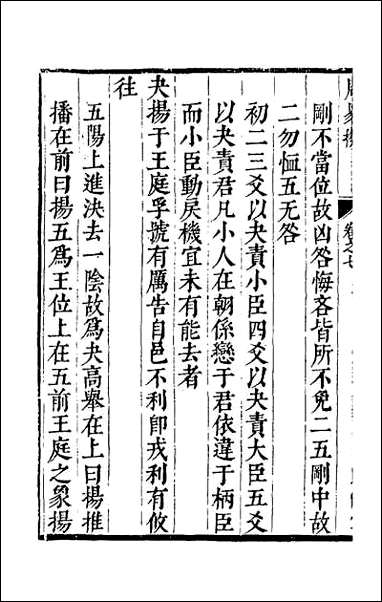 剛不當位故凶咎悔吝皆所不免二五剛中故
二勿恤五无咎
初二三爻以夬責小臣四爻以夬責大臣五爻
以夬責君凡小人在朝係戀于君依違于柄臣
而小臣動戾機宜未有能去者
夬揚于王庭孚號有厲告自邑不利卽戎利有攸
往
五陽上進決去一陰故爲夬高舉在上曰揚推
播在前曰揚五爲王位上在五前王庭之象揚